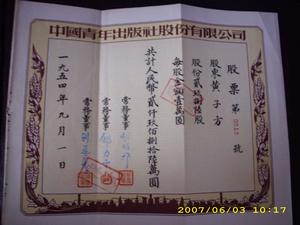 中國青年出版社股份有限公司
股票 第 號
股東黃子方
股份貳玖捌陸股
每股金額壹萬圓
共計人民幣貳仟玖佰捌拾陸萬圓
常務董事
常務董事
常務董事
一九五四年九月一日
2007/06/03 10:17